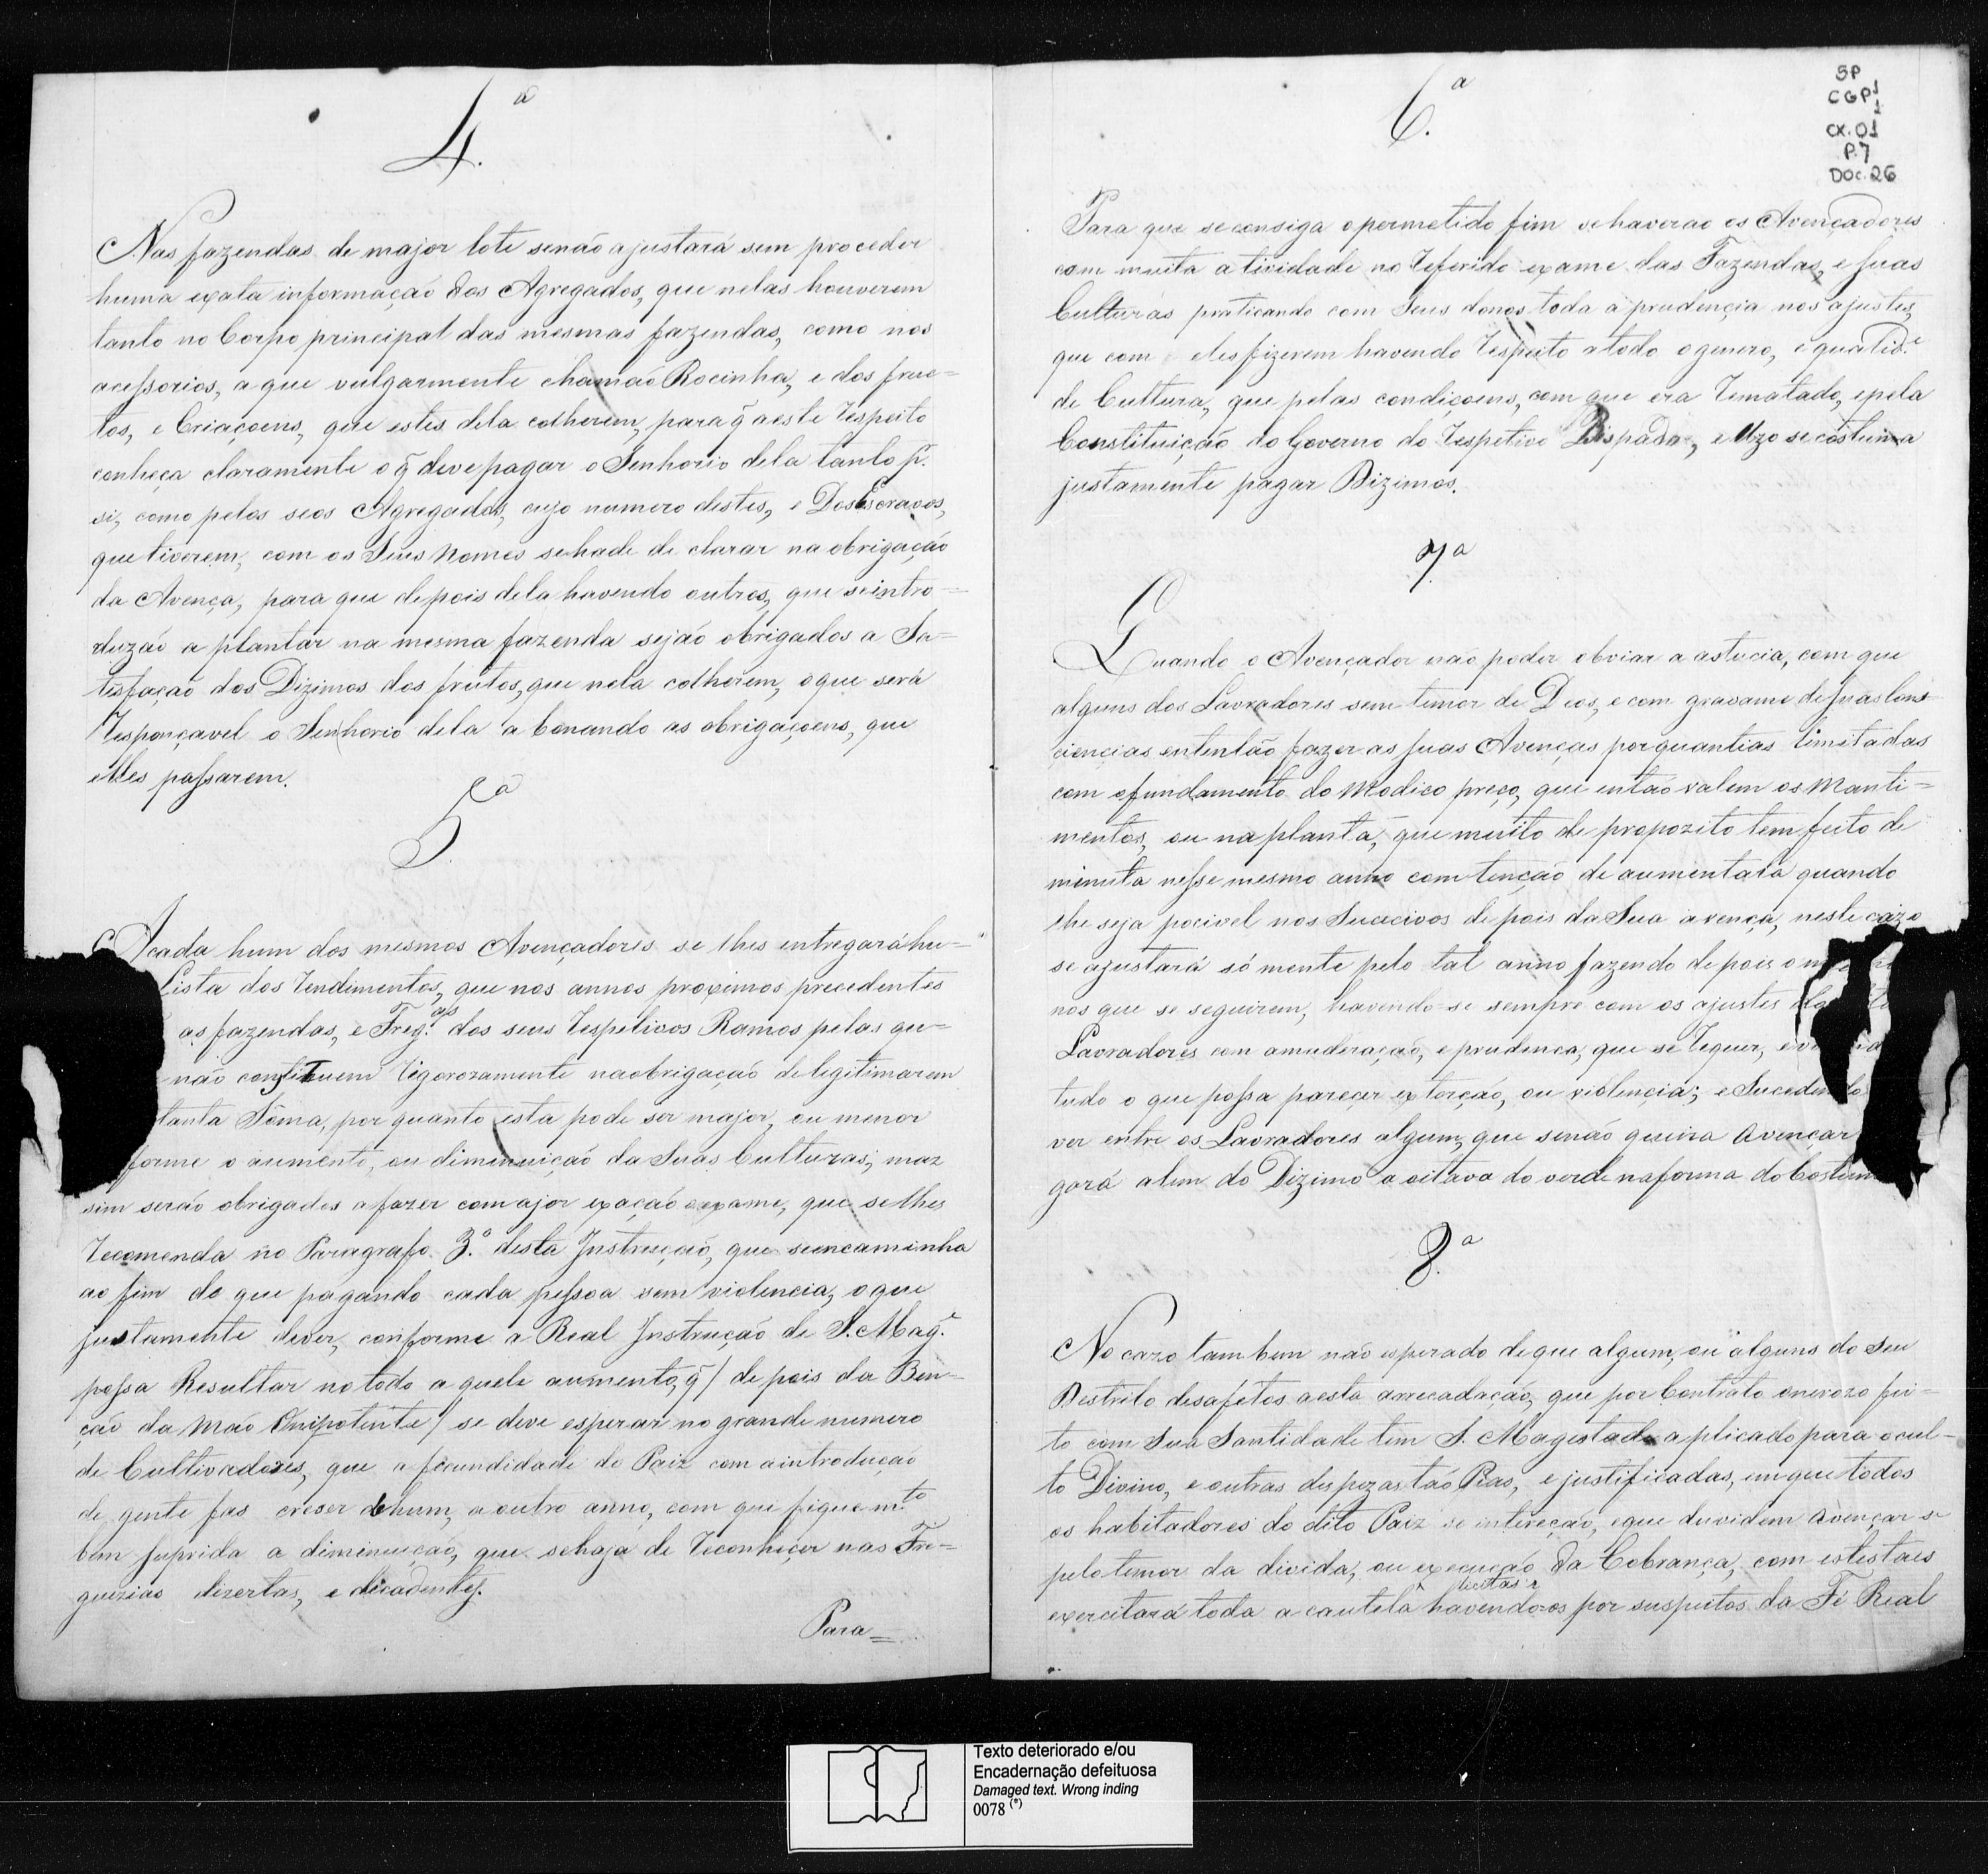 4.ª
Nas fazendas de major lote senão ajustará sem proceder
huma exata informação dos Agregados, que nelas houverem
tanto no Corpo principal das mesmas fazendas, como nos
acessorios, a que vulgarmente chamaõ Rocinha, e dos fruc=
tos, e Criaçoens, que estes dela colherem, para q̃ a este respeito
conheça claramente o q̃ deve pagar o Senhorio dela tanto p.
si, como pelos seos Agregados, cujo numero destes, e Dos Escravos,
que tiverem, com os Seus Nomes sehade de clarar na obrigação
da Avença, para que depois dela havendo outros, que seintro=
duzaõ a plantar na mesma fazenda sejaõ obrigados a Sa=
tisfação dos Dizimos dos frutos, que nela colherem, oque será
responçavel o Senhorio dela abonando as obrigaçoens, que
elles passarem.
5.ª
Acada hum dos mesmos Avençadores se lhes entregará hu=
Lista dos rendimentos, que nos annos proximos precedentes
as fazendas, e Freg.as dos seus respetivos Ramos pelas qu=
não constituem rigorozamente na obrigação de legitimarem
tanta Sôma, por quanto esta pode ser major, ou menor
forme o aumento, ou diminuição da Suas Culturas; maz
sim serão obrigados a fazer comajor exação o exame, que selhes
recomenda no Paragrafo 3.º desta Instrução, que seencaminha
ao fim de que pagando cada pessoa sem violencia, o que
justamente dever, conforme a Real Instrução de S. Mag.e
possa Resultar no todo aquele aumento, q̃ / depois da Ben-
ção da Maõ Onipotente / se deve esperar no grande numero
de Cultivadores, que a fecundidade do Paiz com a introdução
de gente fas creser dehum, a outro anno, com que fique m.to
bem suprida a diminuição, que sehaja de reconhecer nas Fre=
guezias dizertas, e decadentes.
Para=
SP
CGP1
1
CX.01
P.7
DOC.26
6.ª
Para que seconsiga opermetido fim sehaverao os Avençadores
com muita atividade no referido exame das Fazendas, e suas
Culturas praticando com seus donos toda a prudencia nos ajustes,
que com elles fizerem havendo respeito atodo ogenero, e qualid.e
de Cultura, que pelas condiçoens, com que era rematado, epela
Constituição do Governo do respetivo Bispado, e Uzo se costuma
justamente pagar Dizimos.
7.ª
Quando o Avençador não poder obviar a astucia, com que
alguns dos Lavradores sem temor de Deos, e com gravame de suas Cons
ciencias intentão fazer as suas Avenças por quantias limitadas
com ofundamento do Modico preço, que entaõ valem os Manti=
mentos, ou na planta, que muito de propozito tem feito de
minuta nesse mesmo anno com tenção de aumentala quando
lhe seja pocivel nos Sucecivos depois da Sua avença, neste cazo
se ajustará sómente pelo tal anno fazendo depois o m
nos que se seguirem, havendo-se sempre com os ajustes
Lavradores com amuderação, e prudenca, que se requer,
tudo o que possa pareçer extorção, ou violencia; e Sucedendo
ver entre os Lavradores algum, que senão queira Avençar
gará alem do Dizimo a oitava do verde naforma do Costum
8.ª
No cazo tambem não esperado deque algum, ou alguns do Seu
Destrito desafetos aesta arrecadação, que por Contrato onerozo fei=
to com Sua Santidade tem S. Magestade aplicado para ocul-
to Divino, e outras despezas taõ Pias, e justificadas, em que todos
os habitadores do dito Paiz se intereçaõ, eque duvidem Avençar se
pelo temor da divida, ou execução da Cobrança, com estes taes
exercitará toda a cautela havendo-os por suspeitos da Fé Real
Texto deteriorado e/ou
Encadernação defeituosa
Damaged text. Wrong inding
0078 (*)